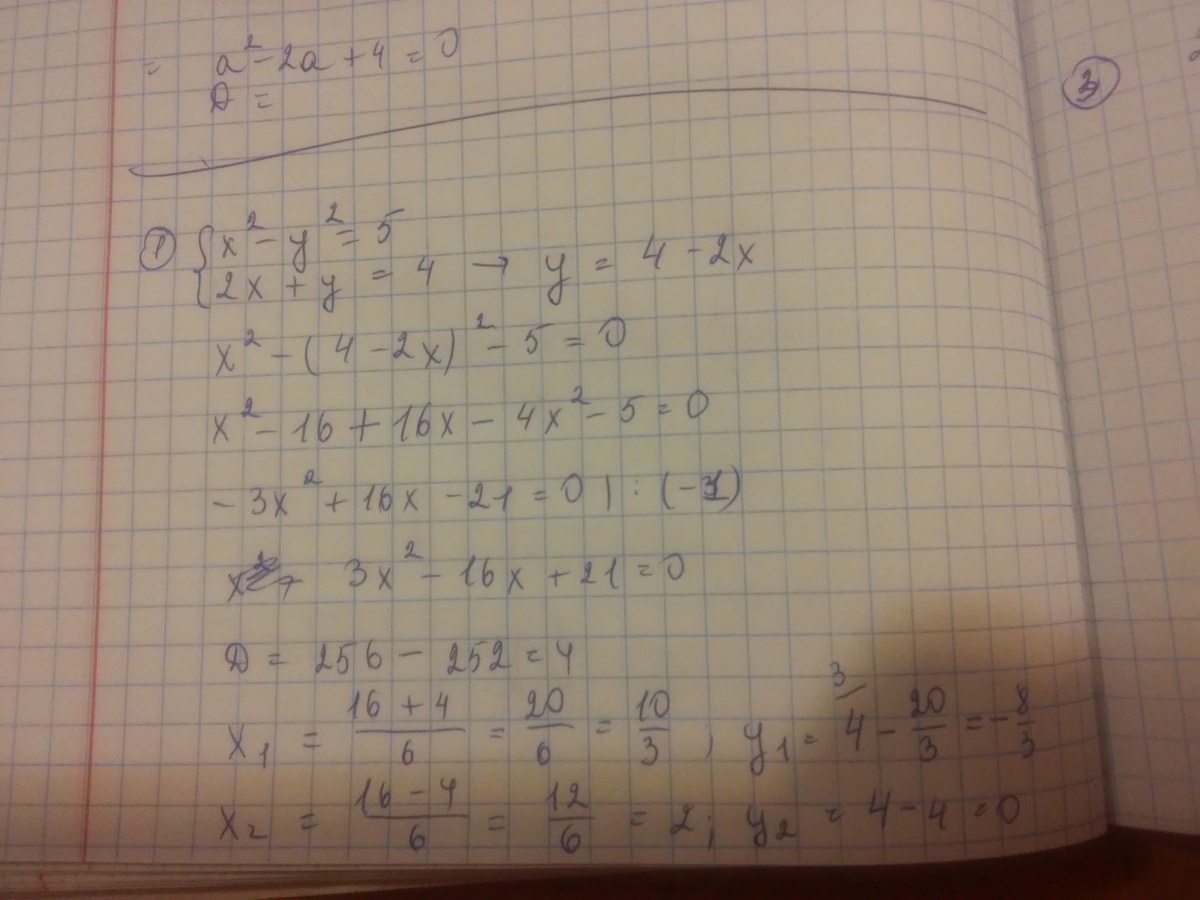 = a² - 2a + 4 = 0
D =
① { x² - y² = 5
2x + y = 4 → y = 4 - 2x
x² - (4 - 2x)² - 5 = 0
x² - 16 + 16x - 4x² - 5 = 0
- 3x² + 16x - 21 = 0 | : (-1)
3x² - 16x + 21 = 0
D = 256 - 252 = 4
x₁ = (16 + 4)/6 = 20/6 = 10/3 ; y₁ = ³/4 - 20/3 = -8/3
x₂ = (16 - 4)/6 = 12/6 = 2 ; y₂ = 4 - 4 = 0